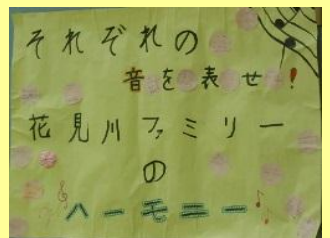 それぞれの
音を表せ!
花見川ファミリー
の
ハーモニー